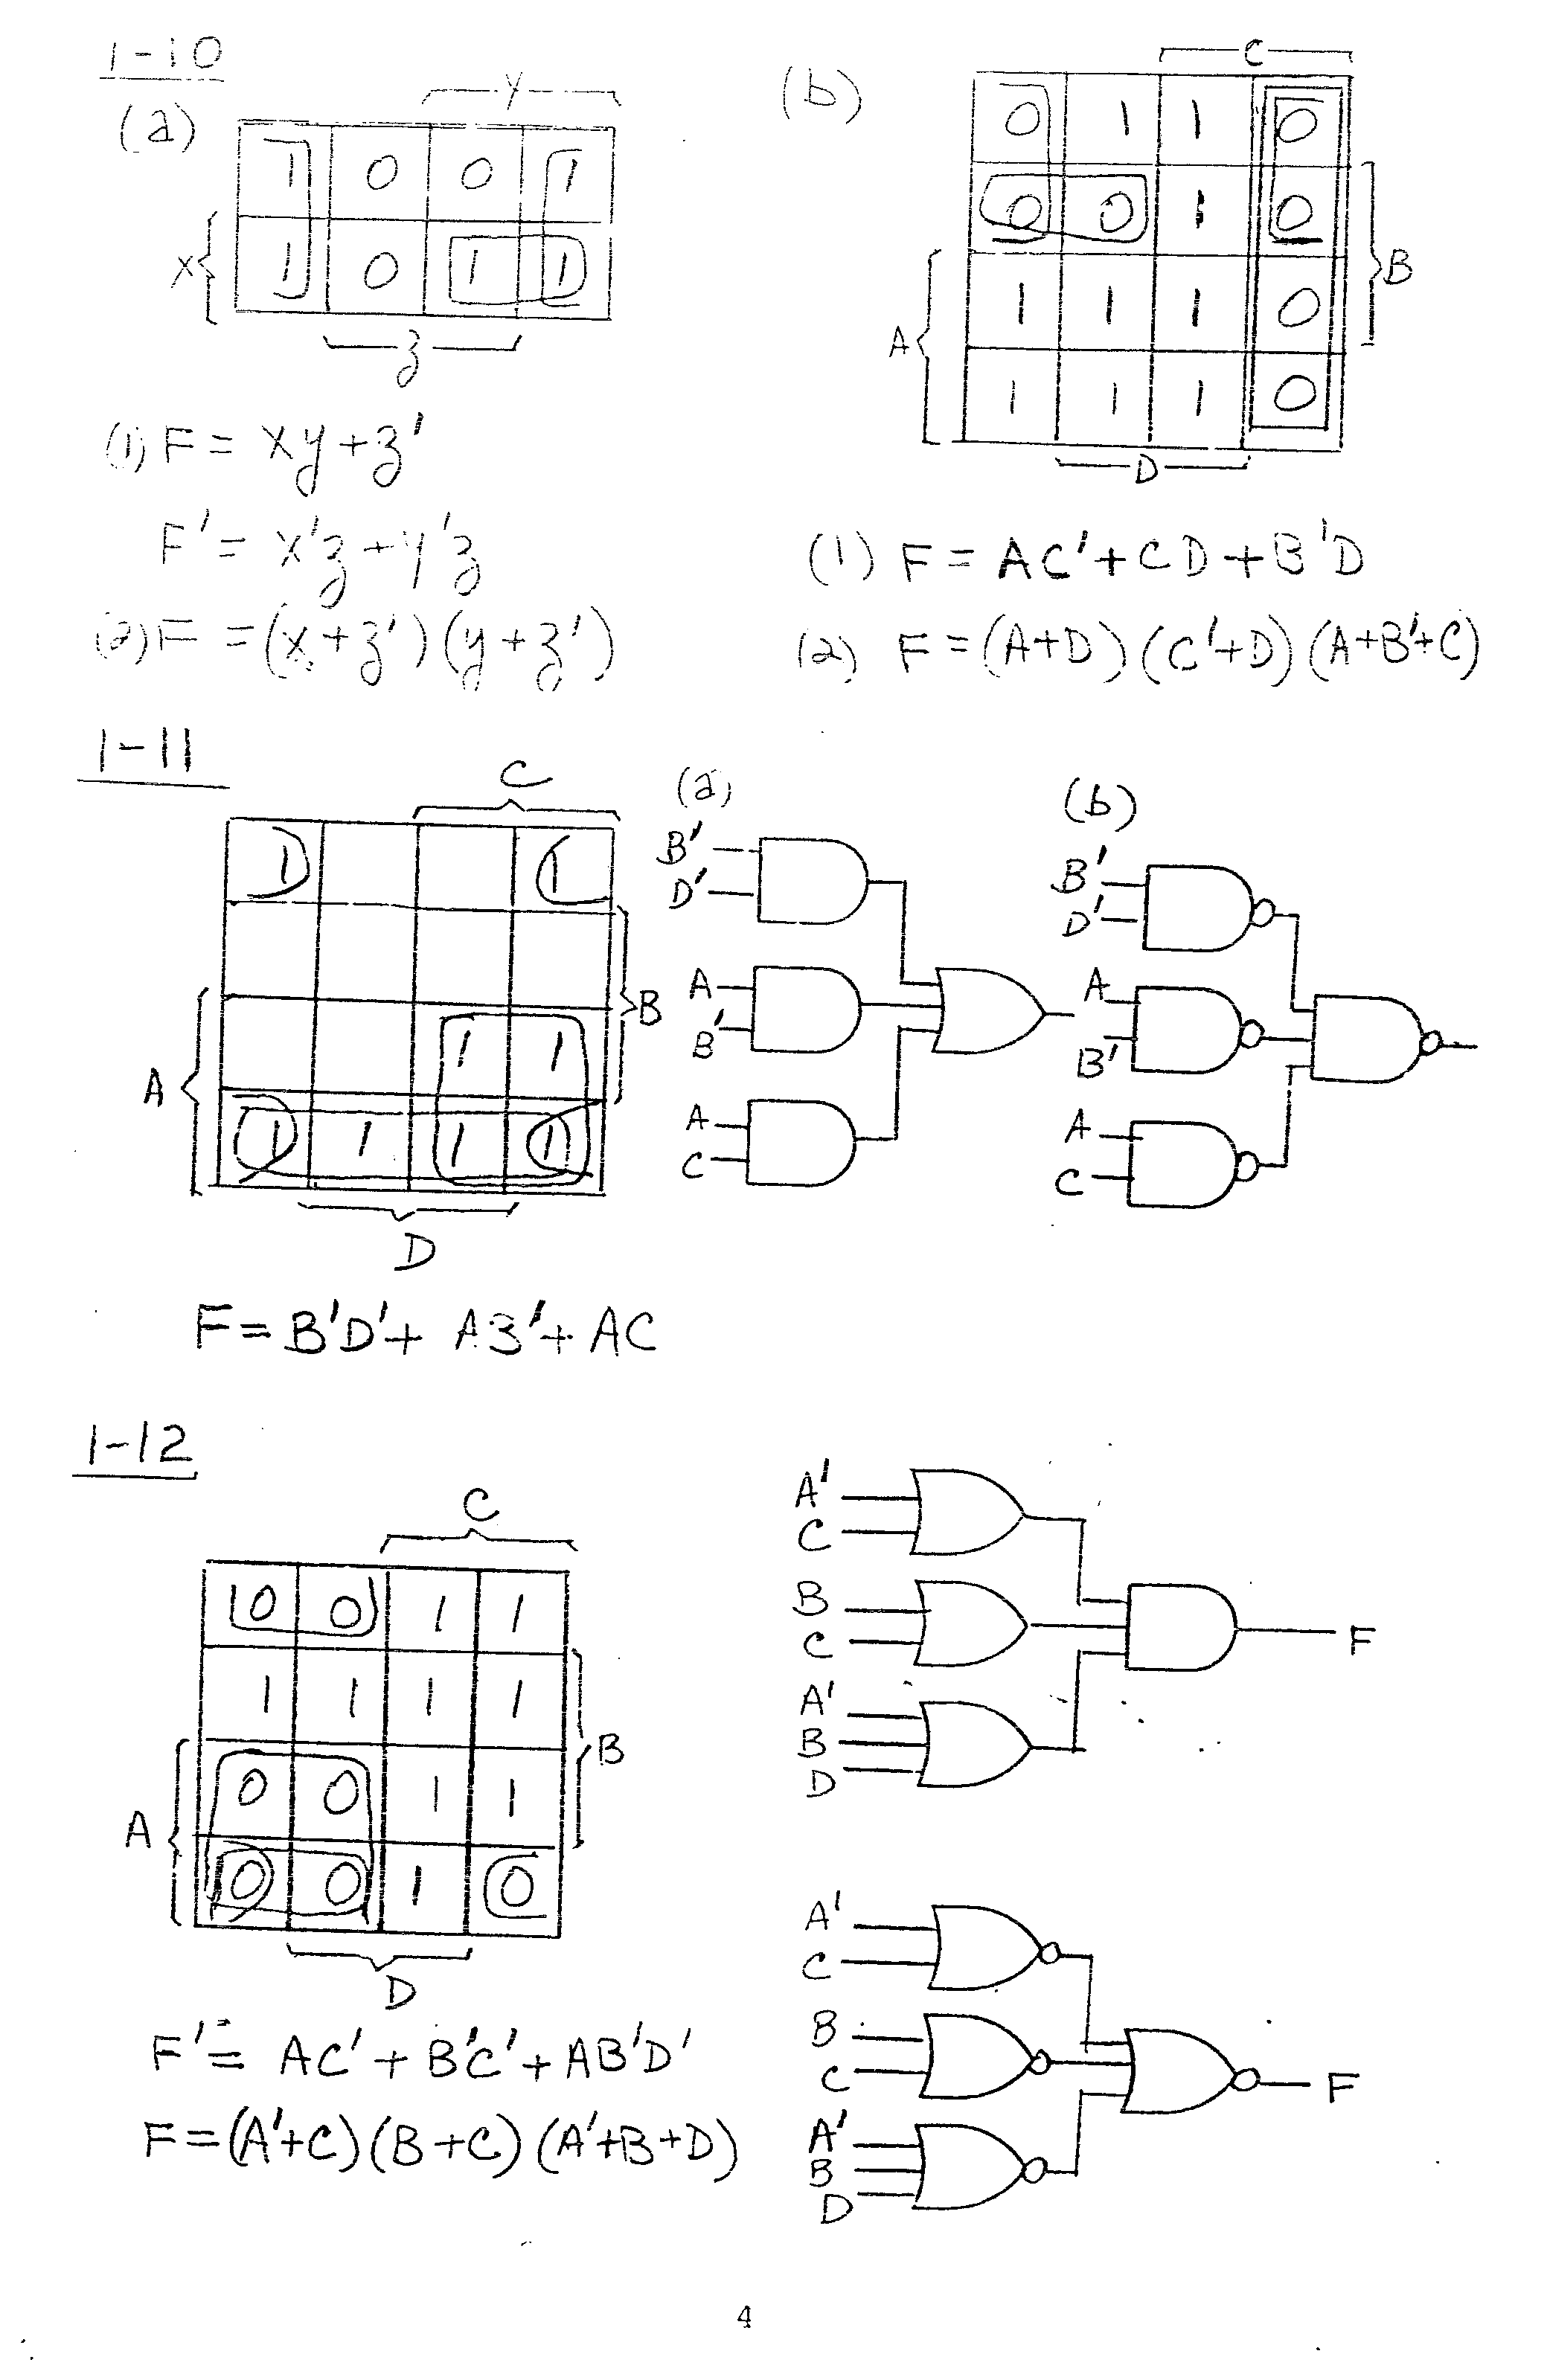 1-10
(a)
y
1 0 0 1
x 1 0 1 1
z
(1) F = xy + z'
F' = x'z + y'z
(2) F = (x + z') (y + z')
(b)
C
0 1 1 0
0 0 1 0
B
1 1 1 0
A
1 1 1 0
D
(1) F = AC' + CD + B'D
(2) F = (A+D) (C'+D) (A+B'+C)
1-11
C
1 1
B
1 1
A
1 1 1 1
D
F = B'D' + AB' + AC
(a)
B'
D'
A
B'
A
C
(b)
B'
D'
A
B'
A
C
1-12
C
0 0 1 1
1 1 1 1
B
0 0 1 1
A
0 0 1 0
D
F' = AC' + B'C' + AB'D'
F = (A'+C) (B+C) (A'+B+D)
A'
C
B
C
F
A'
B
D
A'
C
B
C
F
A'
B
D
4